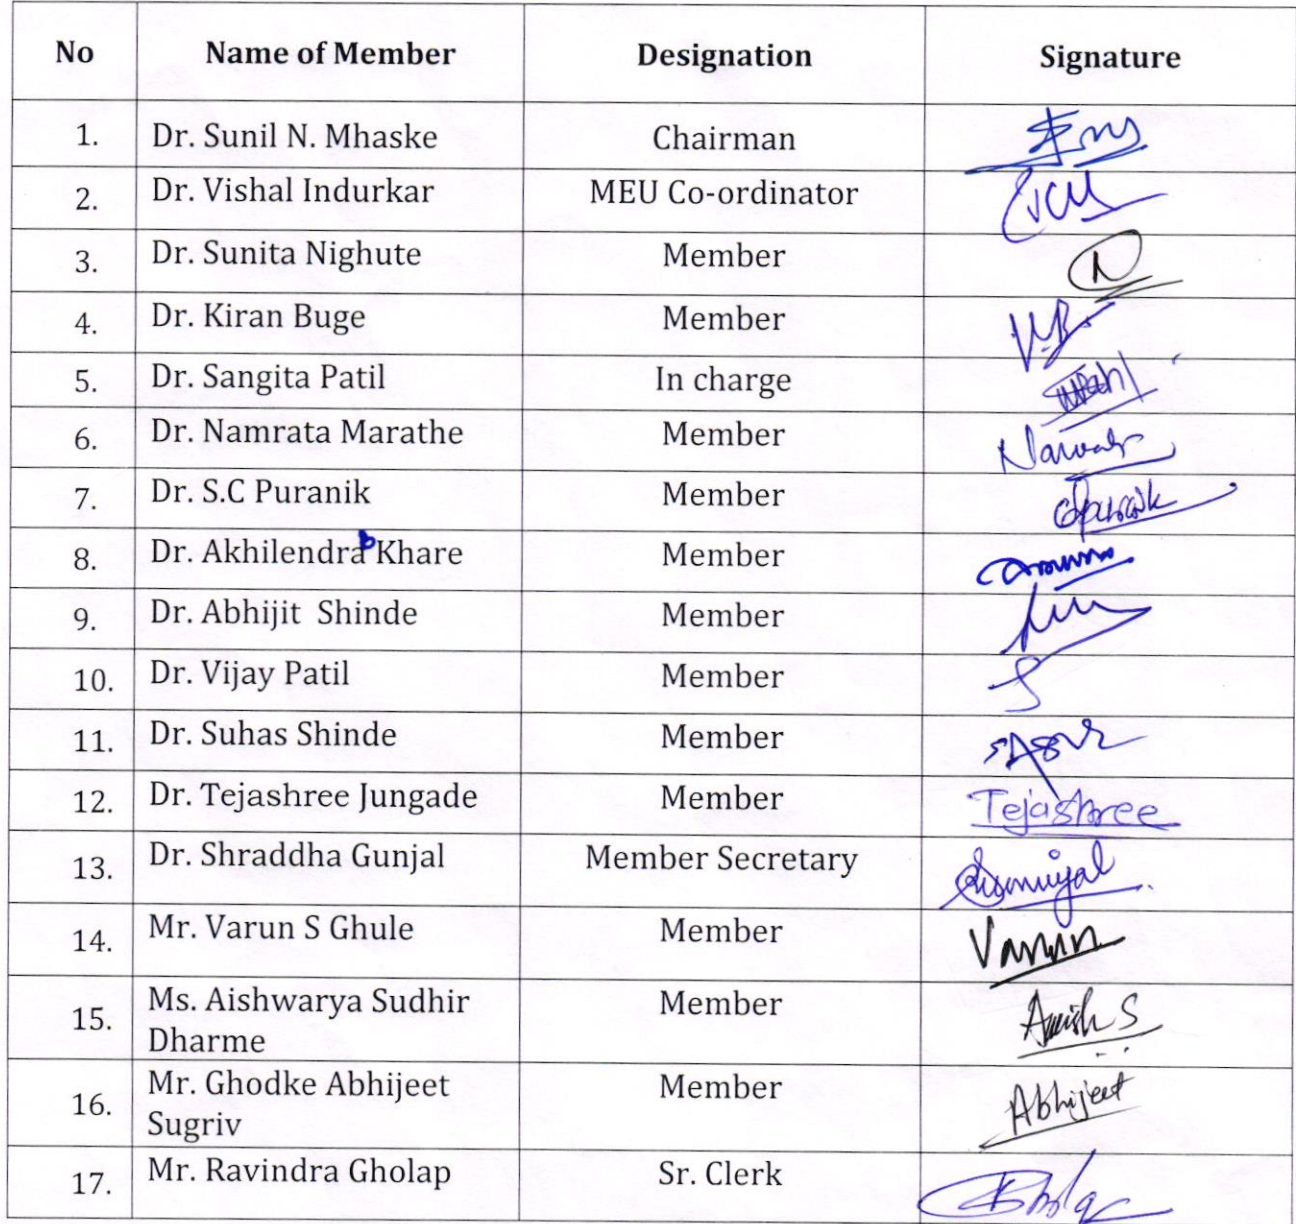 No Name of Member Designation Signature
1. Dr. Sunil N. Mhaske Chairman
2. Dr. Vishal Indurkar MEU Co-ordinator
3. Dr. Sunita Nighute Member N
4. Dr. Kiran Buge Member
5. Dr. Sangita Patil In charge
6. Dr. Namrata Marathe Member
7. Dr. S.C Puranik Member
8. Dr. Akhilendra Khare Member
9. Dr. Abhijit Shinde Member
10. Dr. Vijay Patil Member
11. Dr. Suhas Shinde Member
12. Dr. Tejashree Jungade Member Tejashree
13. Dr. Shraddha Gunjal Member Secretary
14. Mr. Varun S Ghule Member Varun
15. Ms. Aishwarya Sudhir Member
Dharme
16. Mr. Ghodke Abhijeet Member Abhijeet
Sugriv
17. Mr. Ravindra Gholap Sr. Clerk